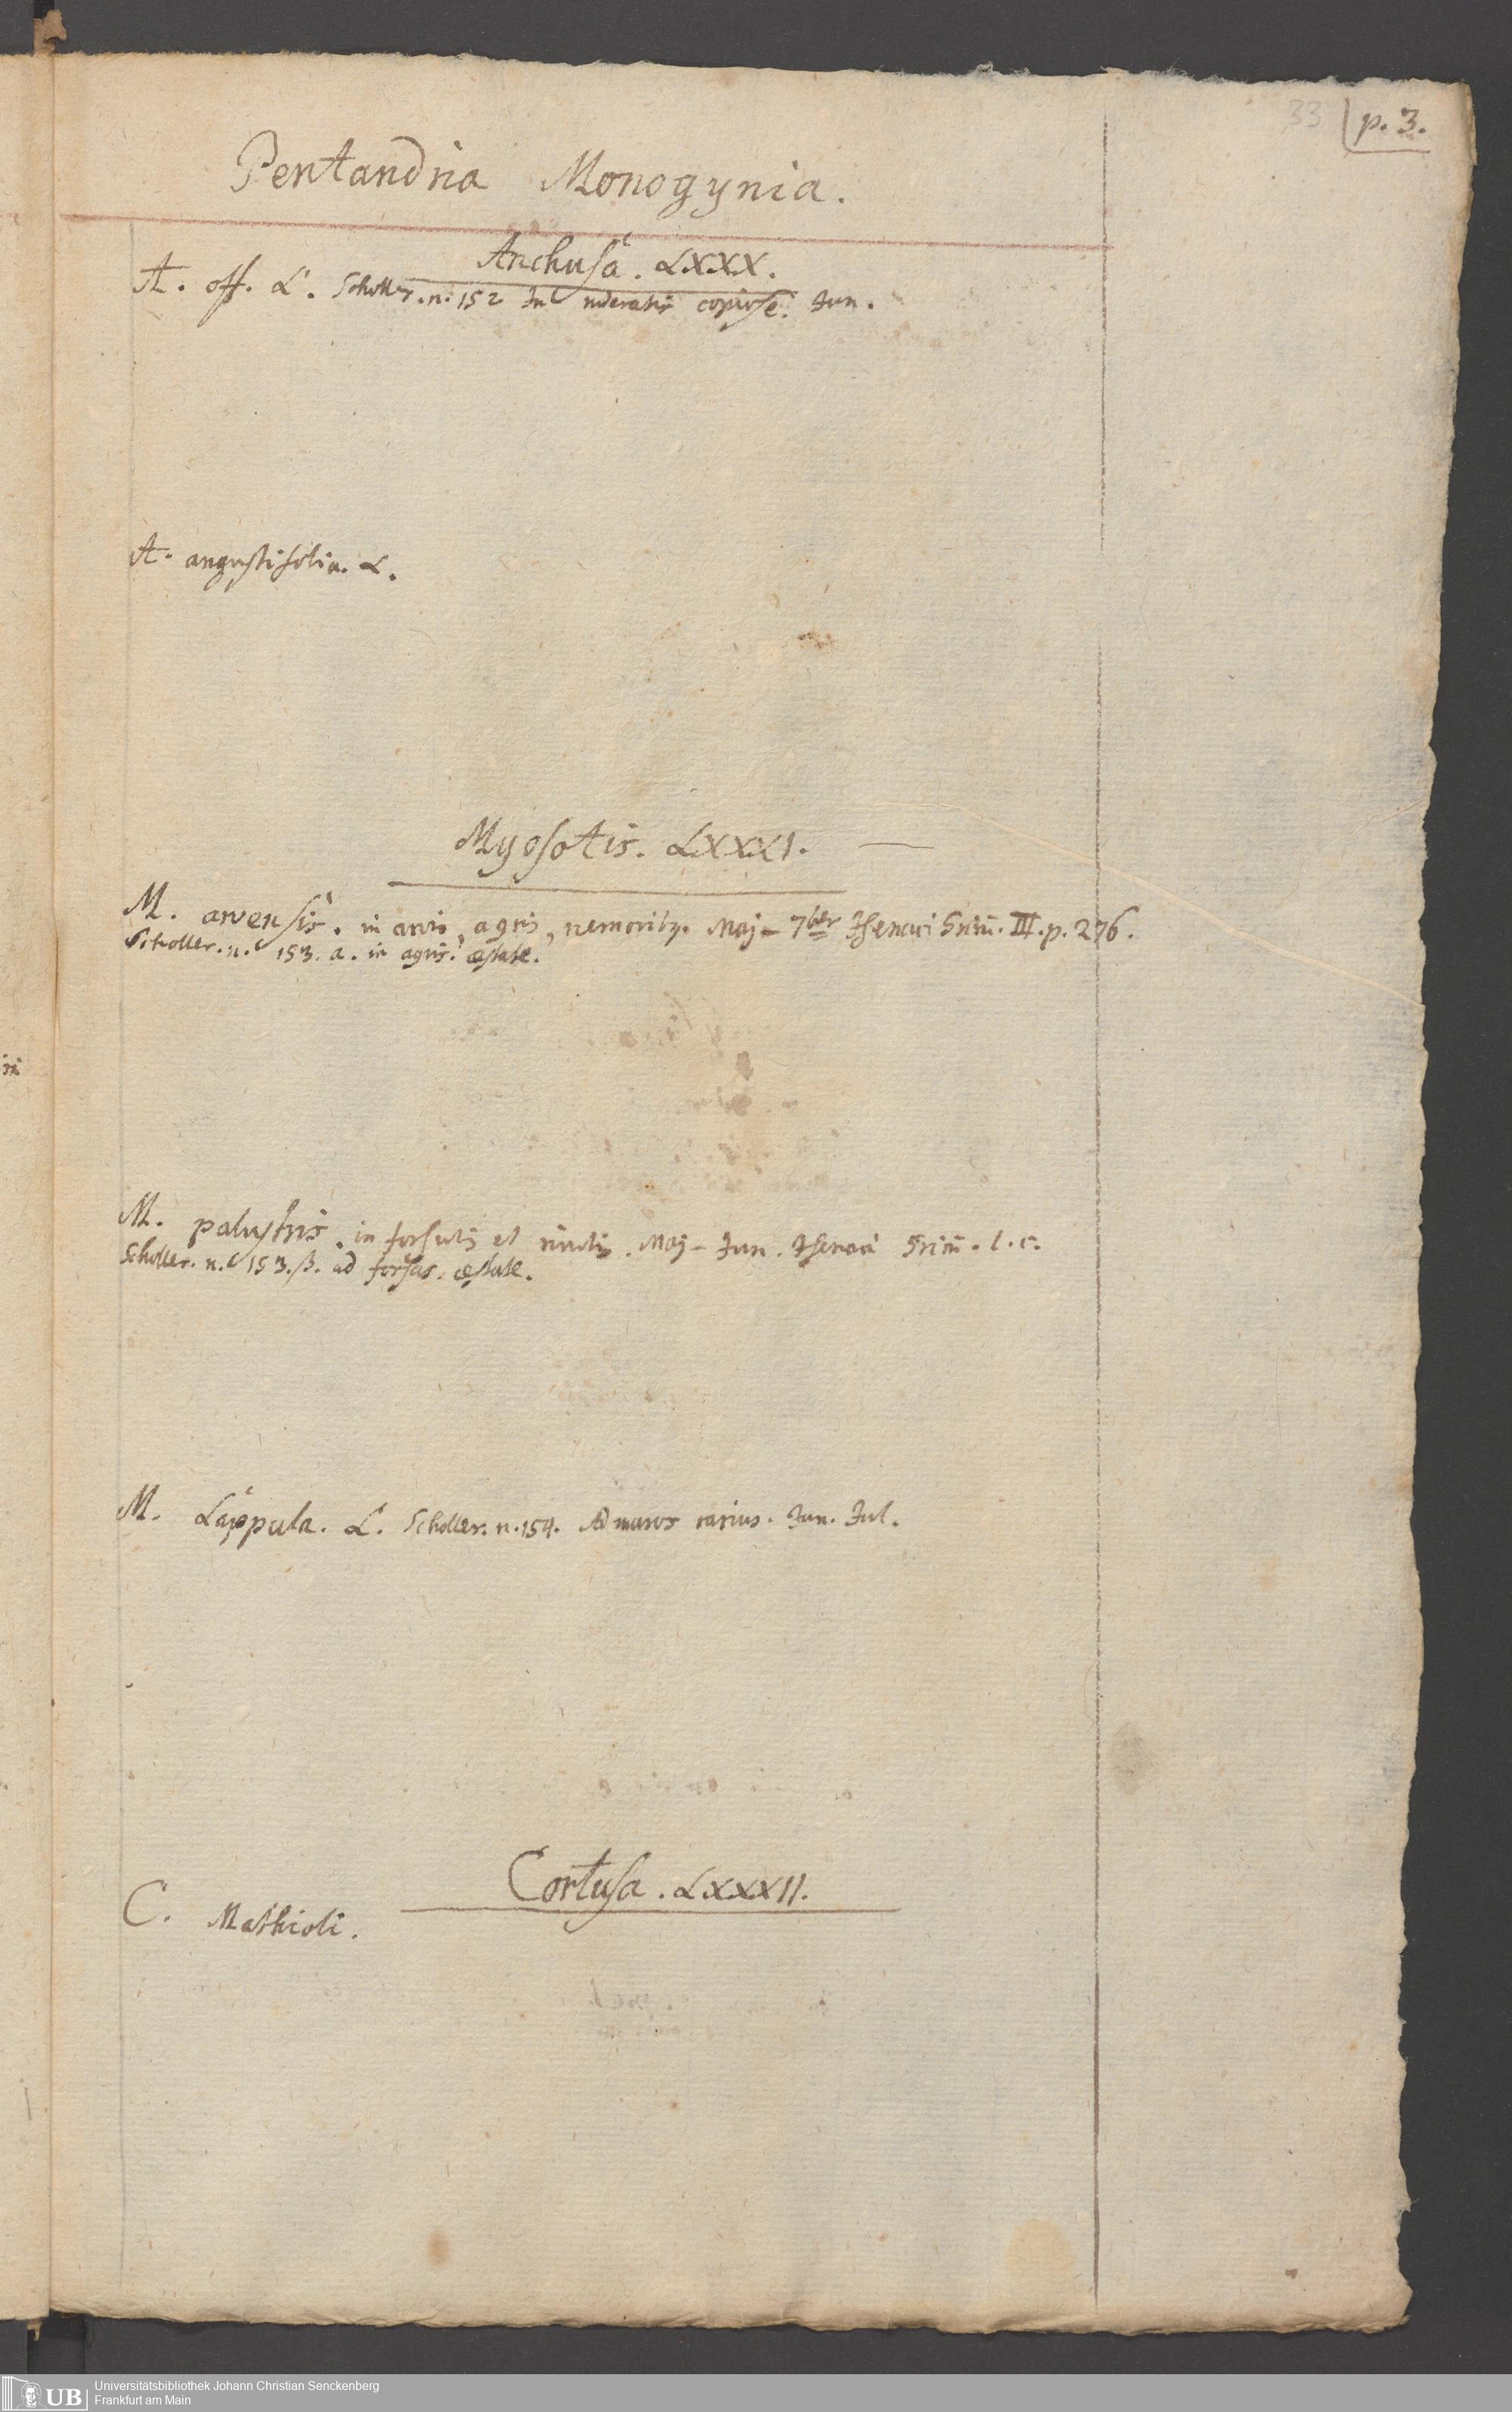 33 p. 3.
Pentandria Monogynia.
Anchusa. LXXX.
A. off. L. Scholler. n. 152 In ruderatis copiose. Jun.
A. angustifolia. L.
Myosotis. LXXXI. —
M. arvensis. in arvis, agris, nemoribꝫ. Maj – 7br Isenaci Grim. III. p. 276.
Scholler. n. 153. a. in agris. æstate.
M. palustris. in fossulis et rivulis. Maj – Jun. Isenaci Grim. l. c.
Scholler. n. 153. β. ad fossas. æstate.
M. Lappula. L. Scholler. n. 154. Ad muros rarius. Jun. Jul.
Cortusa. LXXXII.
C. Mathioli.
UB Universitätsbibliothek Johann Christian Senckenberg
Frankfurt am Main